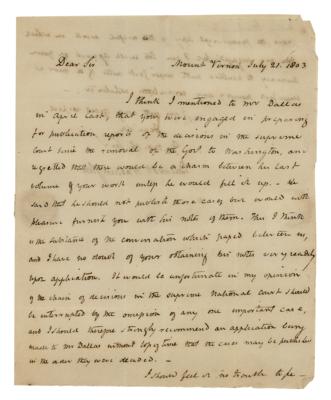 Dear Sir Mount Vernon July 21. 1803
I think I mentioned to Mr Dallas
in April last, that you were engaged in preparing
for publication, reports of the decisions in the supreme
court since the removal of the Govt to Washington, and
regretted that there would be a chasm between his last
volume & your work unless he would fill it up. — He
said that he should not publish those cases but would with
pleasure furnish you with his notes of them. This I think
is the substance of the conversation which passed between us,
and I have no doubt of your obtaining his notes very readily
upon application. It would be unfortunate in my opinion
if the chain of decisions in the supreme National court should
be interrupted by the omission of any one important case,
and I should therefore strongly recommend an application being
made to Mr Dallas without loss of time that the cases may be published
in the order they were decided. —
I should feel it no trouble to